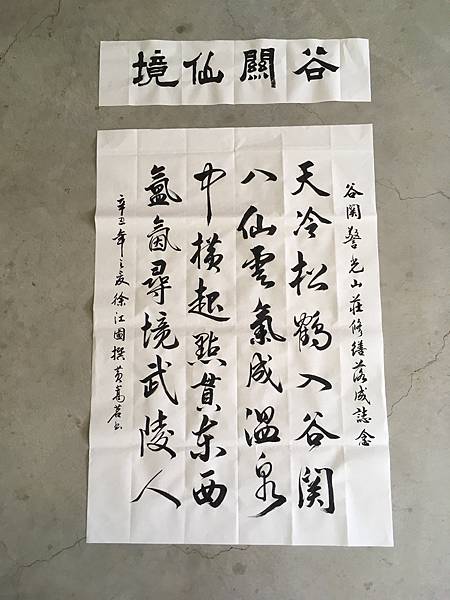 谷關仙境
谷関警光山莊修繕落成誌念
天冷松鶴入谷関
八仙雲氣成溫泉
中橫起點貫东西
氳氤尋境武陵人
辛丑年之夏徐江圖撰黃嵩茗書